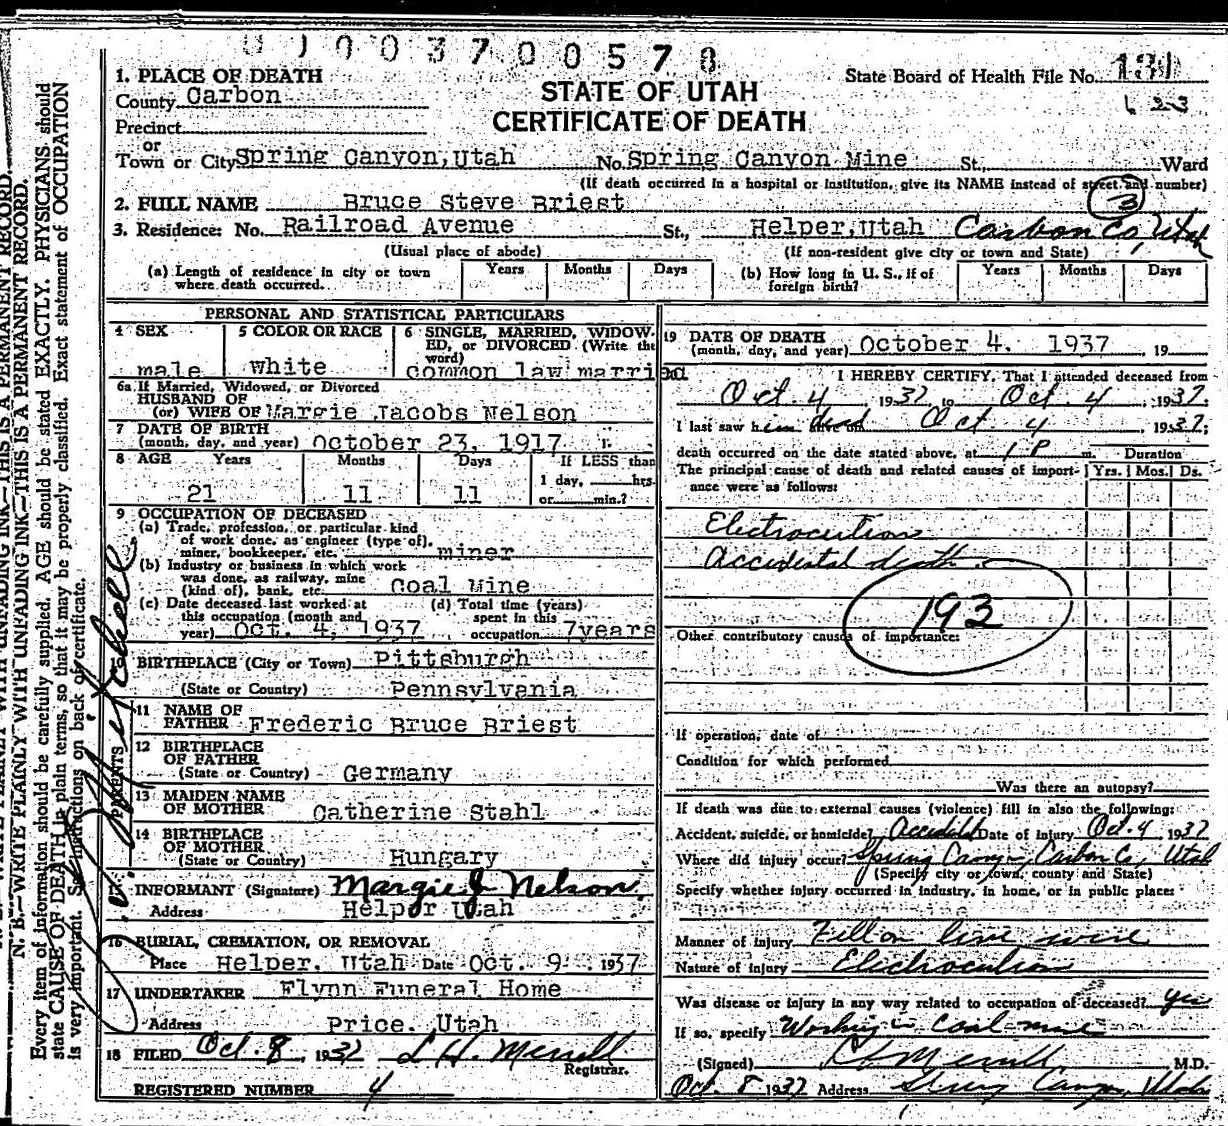 0 1 0 0 3 7 0 0 5 7 8
1. PLACE OF DEATH
County Carbon
Precinct
or
Town or City Spring Canyon, Utah No. Spring Canyon Mine St., Ward
STATE OF UTAH
CERTIFICATE OF DEATH
State Board of Health File No. 131
123
(If death occurred in a hospital or institution, give its NAME instead of street and number)
3
2. FULL NAME Bruce Steve Briest
3. Residence: No. Railroad Avenue St., Helper, Utah Carbon Co, Utah
(Usual place of abode) (If non-resident give city or town and State)
(a) Length of residence in city or town where death occurred. Years Months Days
(b) How long in U. S., if of foreign birth? Years Months Days
PERSONAL AND STATISTICAL PARTICULARS
4 SEX male
5 COLOR OR RACE White
6 SINGLE, MARRIED, WIDOW-
ED, or DIVORCED (Write the
word)
common law married
6a If Married, Widowed, or Divorced
HUSBAND OF
(or) WIFE OF Margie Jacobs Nelson
7 DATE OF BIRTH
(month, day, and year) October 23, 1917
8 AGE Years Months Days If LESS than
1 day, hrs.
or min.?
21 11 11
9 OCCUPATION OF DECEASED
(a) Trade, profession, or particular kind
of work done, as engineer (type of),
miner, bookkeeper, etc. miner
(b) Industry or business in which work
was done, as railway, mine
(kind of), bank, etc. Coal Mine
(c) Date deceased last worked at
this occupation (month and
year) Oct. 4, 1937
(d) Total time (years)
spent in this
occupation 7years
10 BIRTHPLACE (City or Town) Pittsburgh
(State or Country) Pennsylvania
PARENTS
11 NAME OF
FATHER Frederic Bruce Briest
12 BIRTHPLACE
OF FATHER
(State or Country) Germany
13 MAIDEN NAME
OF MOTHER Catherine Stahl
14 BIRTHPLACE
OF MOTHER
(State or Country) Hungary
15 INFORMANT (Signature) Margie J Nelson
Address Helper Utah
16 BURIAL, CREMATION, OR REMOVAL
Place Helper, Utah Date Oct. 9 1937
17 UNDERTAKER Flynn Funeral Home
Address Price, Utah
18 FILED Oct. 8, 1937 L H. Merrell
Registrar.
REGISTERED NUMBER 4
19 DATE OF DEATH
(month, day, and year) October 4, 1937 19
I HEREBY CERTIFY, That I attended deceased from
Oct. 4 1937, to Oct. 4, 1937.
I last saw him dead Oct 4, 1937;
death occurred on the date stated above, at 1 P m. Duration
The principal cause of death and related causes of import-
ance were as follows: Yrs. Mos. Ds.
Electrocution
Accidental death
193
Other contributory causes of importance:
If operation, date of
Condition for which performed
Was there an autopsy?
If death was due to external causes (violence) fill in also the following:
Accident, suicide, or homicide? Accident Date of injury Oct. 4 1937
Where did injury occur? Spring Canyon, Carbon Co, Utah
(Specify city or town, county and State)
Specify whether injury occurred in industry, in home, or in public place:
Manner of injury Fell on live wire
Nature of injury Electrocution
Was disease or injury in any way related to occupation of deceased? Yes
If so, specify Working in coal mine
(Signed) L H Merrell M.D.
Oct. 8 1937 Address Spring Canyon, Utah
N. B.—WRITE PLAINLY WITH UNFADING INK—THIS IS A PERMANENT RECORD.
Every item of information should be carefully supplied. AGE should be stated EXACTLY. PHYSICIANS should
state CAUSE OF DEATH in plain terms, so that it may be properly classified. Exact statement of OCCUPATION
is very important. See instructions on back of certificate.